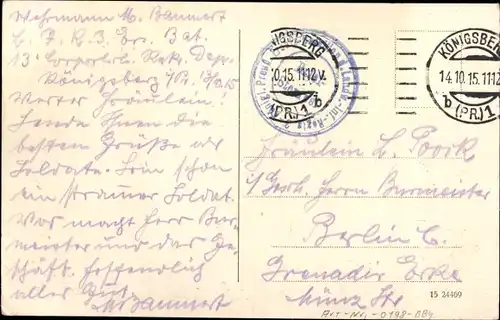 Wehrmann M. Bammert
E. J. R. 3. Ers. Bat.
13. Corporlch. Rek. Dep.
Königsberg i/Pr.
Wertes Fräulein!
Sende Ihnen die
besten Grüße als
Soldate. Bin schon
ein strammer Soldat.
Was macht Herr Bur-
meister und das Ge-
schäft. Hoffendlich
alles Gut.
M. Bammert
KÖNIGSBERG
14.10.15.11-12V.
b (PR.) 1 b
KÖNIGSBERG
14.10.15.11-12
b (PR.) 1
Fräulein L.
i/Gesch. Herrn Burmeister
Berlin C.
Grenadir Ecke
Münz Str
15 24469